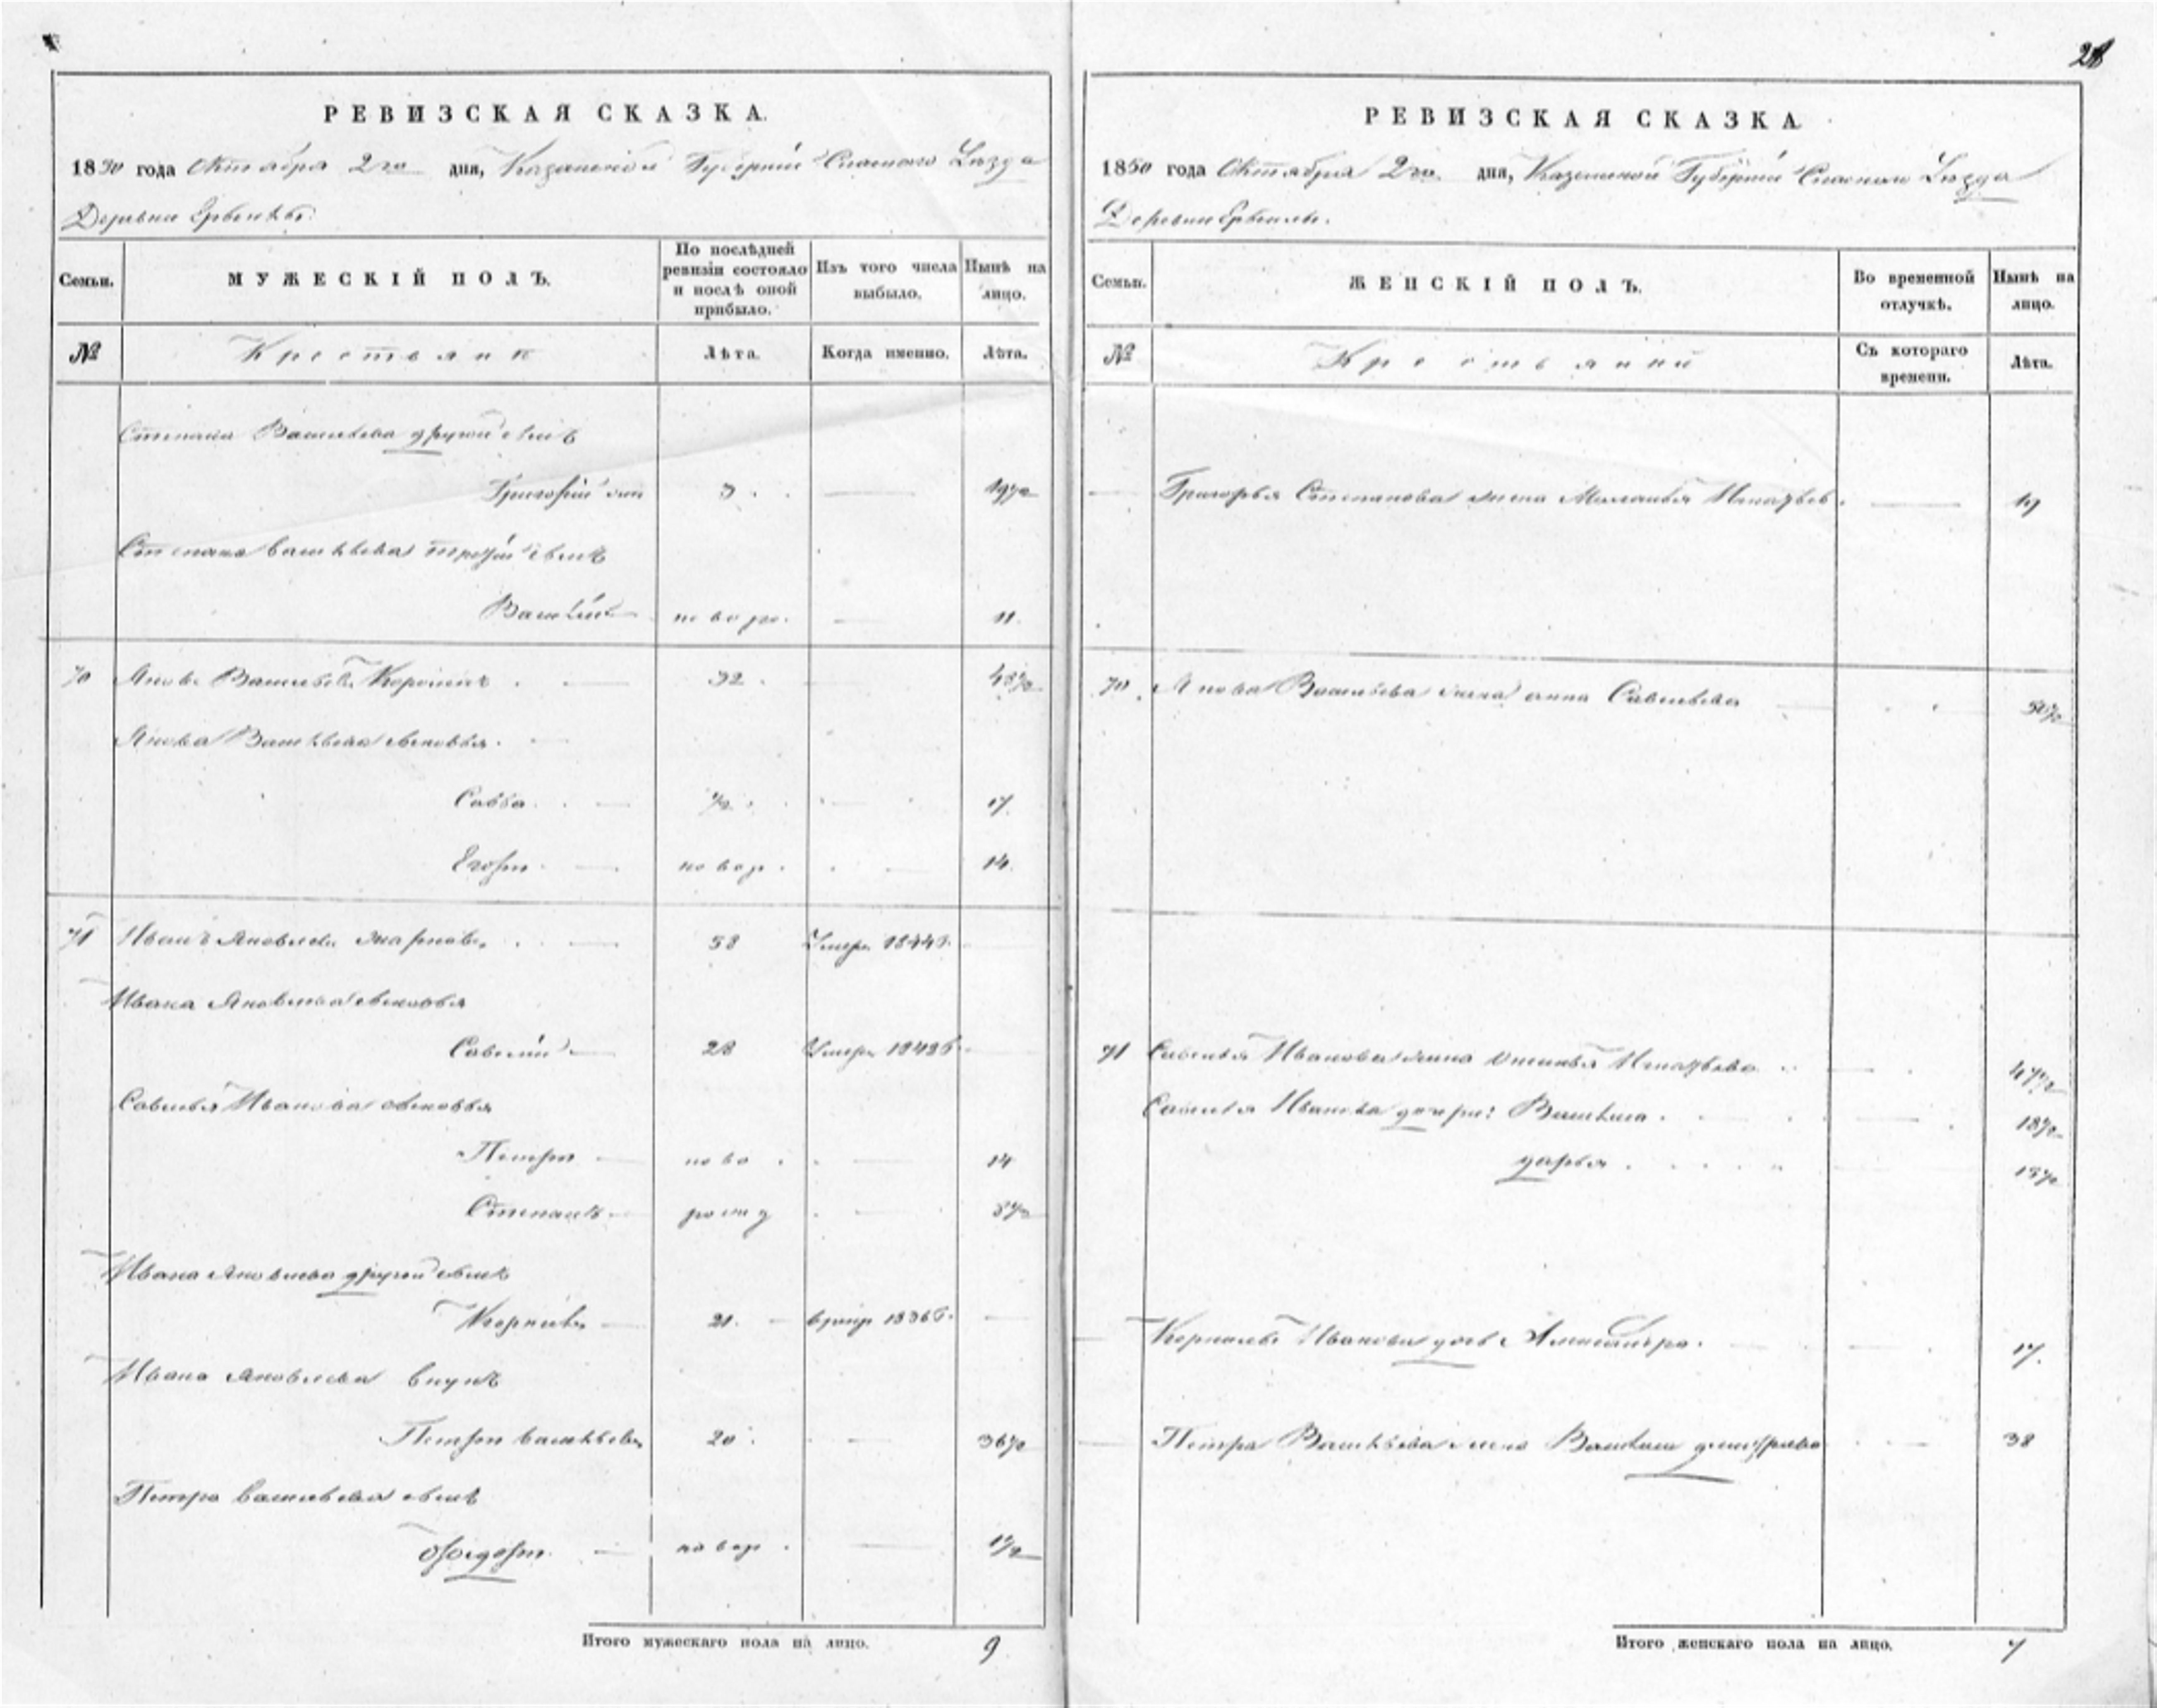 28
РЕВИЗСКАЯ СКАЗКА.
1850 года Октября 2го дня, Казанской Губернии Спасского Уезда
Деревни
Семьи. МУЖЕСКІЙ ПОЛЪ. По послѣдней ревизіи состояло и послѣ оной прибыло. Изъ того числа выбыло. Нынѣ на лицо.
№ Крестьяне Лѣта. Когда именно. Лѣта.
Степана Васильева другой сынъ
Григорий 3 19½
Степана Васильева третий сынъ
Василий новоро. 11.
70 Яковъ Васильевъ 32 48½
Якова Васильева сыновья
Савва ½ 17.
Егоръ новор. 14.
71 Иванъ Яковлевъ 58 Умеръ 1844г.
Ивана Яковлева сыновья
Савелий 28 Умеръ
Савелья Иванова сыновья
Петръ ново 14
Степанъ рожд 8½
Ивана Яковлева другой сынъ
21. 1836г.
Ивана Яковлева внукъ
Петръ Васильевъ 20 36½
Петра Васильева сынъ
новор 1½
Итого мужескаго пола на лицо. 9
РЕВИЗСКАЯ СКАЗКА.
1850 года Октября 2го дня, Казанской Губернии Спасского Уезда
Деревни
Семьи. ЖЕНСКІЙ ПОЛЪ. Во временной отлучкѣ. Нынѣ на лицо.
№ Крестьянки Съ котораго времени. Лѣта.
Григорья Степанова жена 19
70 Якова Васильева жена Анна Савельева 50½
71 Савелья Иванова жена 47½
Савелья Иванова дочери: Василиса 18½
Дарья
Иванова дочь 17.
Петра Васильева жена 38
Итого женскаго пола на лицо. 7